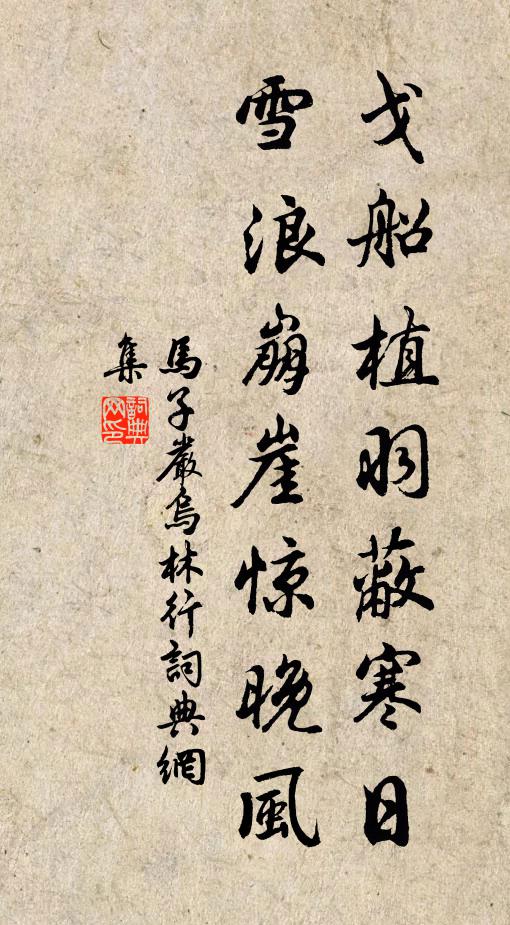 戈船植羽蔽寒日
雪浪崩崖惊晚風
馬子嚴烏林行詞典網
集
詞典网印